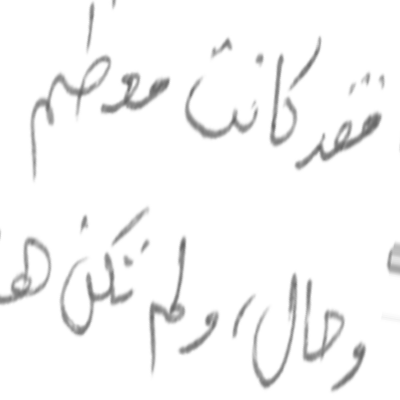 فقد كانت معظم
وحال، ولم تكن ها